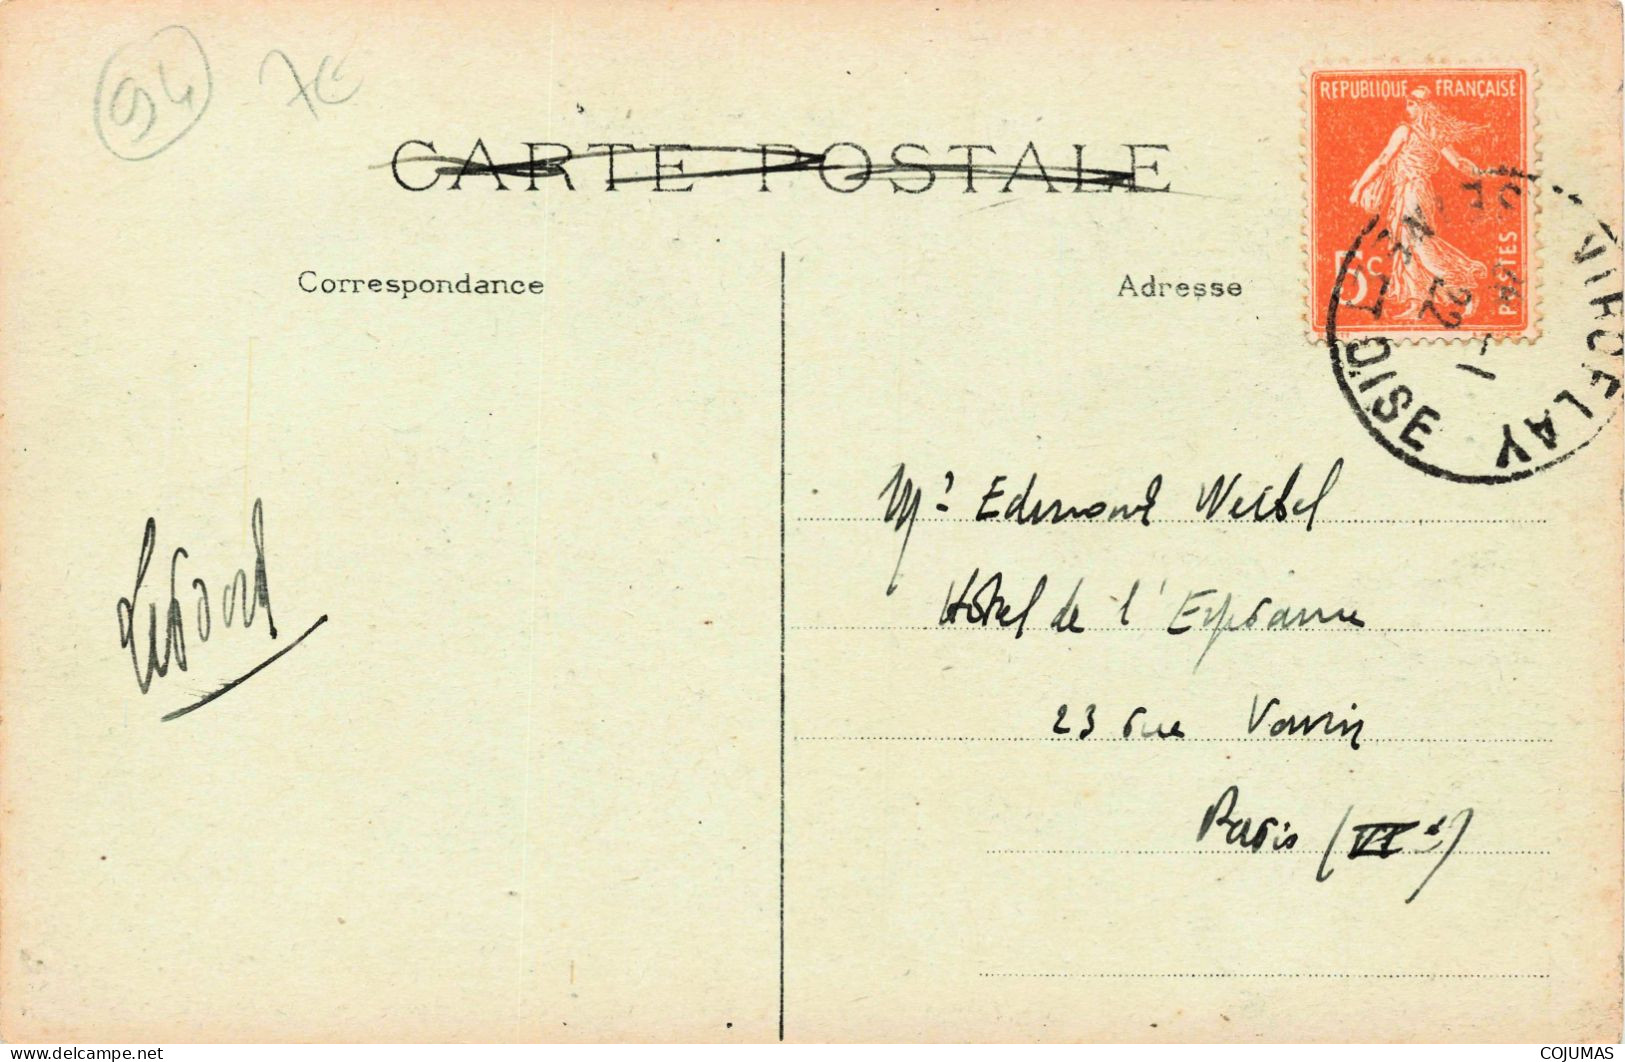 94 7€
CARTE POSTALE
REPUBLIQUE FRANÇAISE
POSTES
5c
VIROFLAY
SEINE ET OISE
-1
22
Correspondance
Adresse
Mr Edmond Weibel
Hôtel de l'Espérance
23 rue Vavin
Paris (VIe)
delcampe.net
COJUMAS